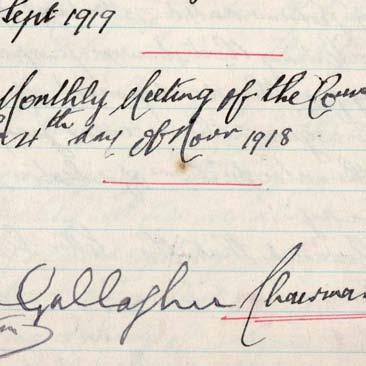 Sept 1919
Monthly Meeting of the Coun
4th day of Novr 1918
Gallagher Chairman